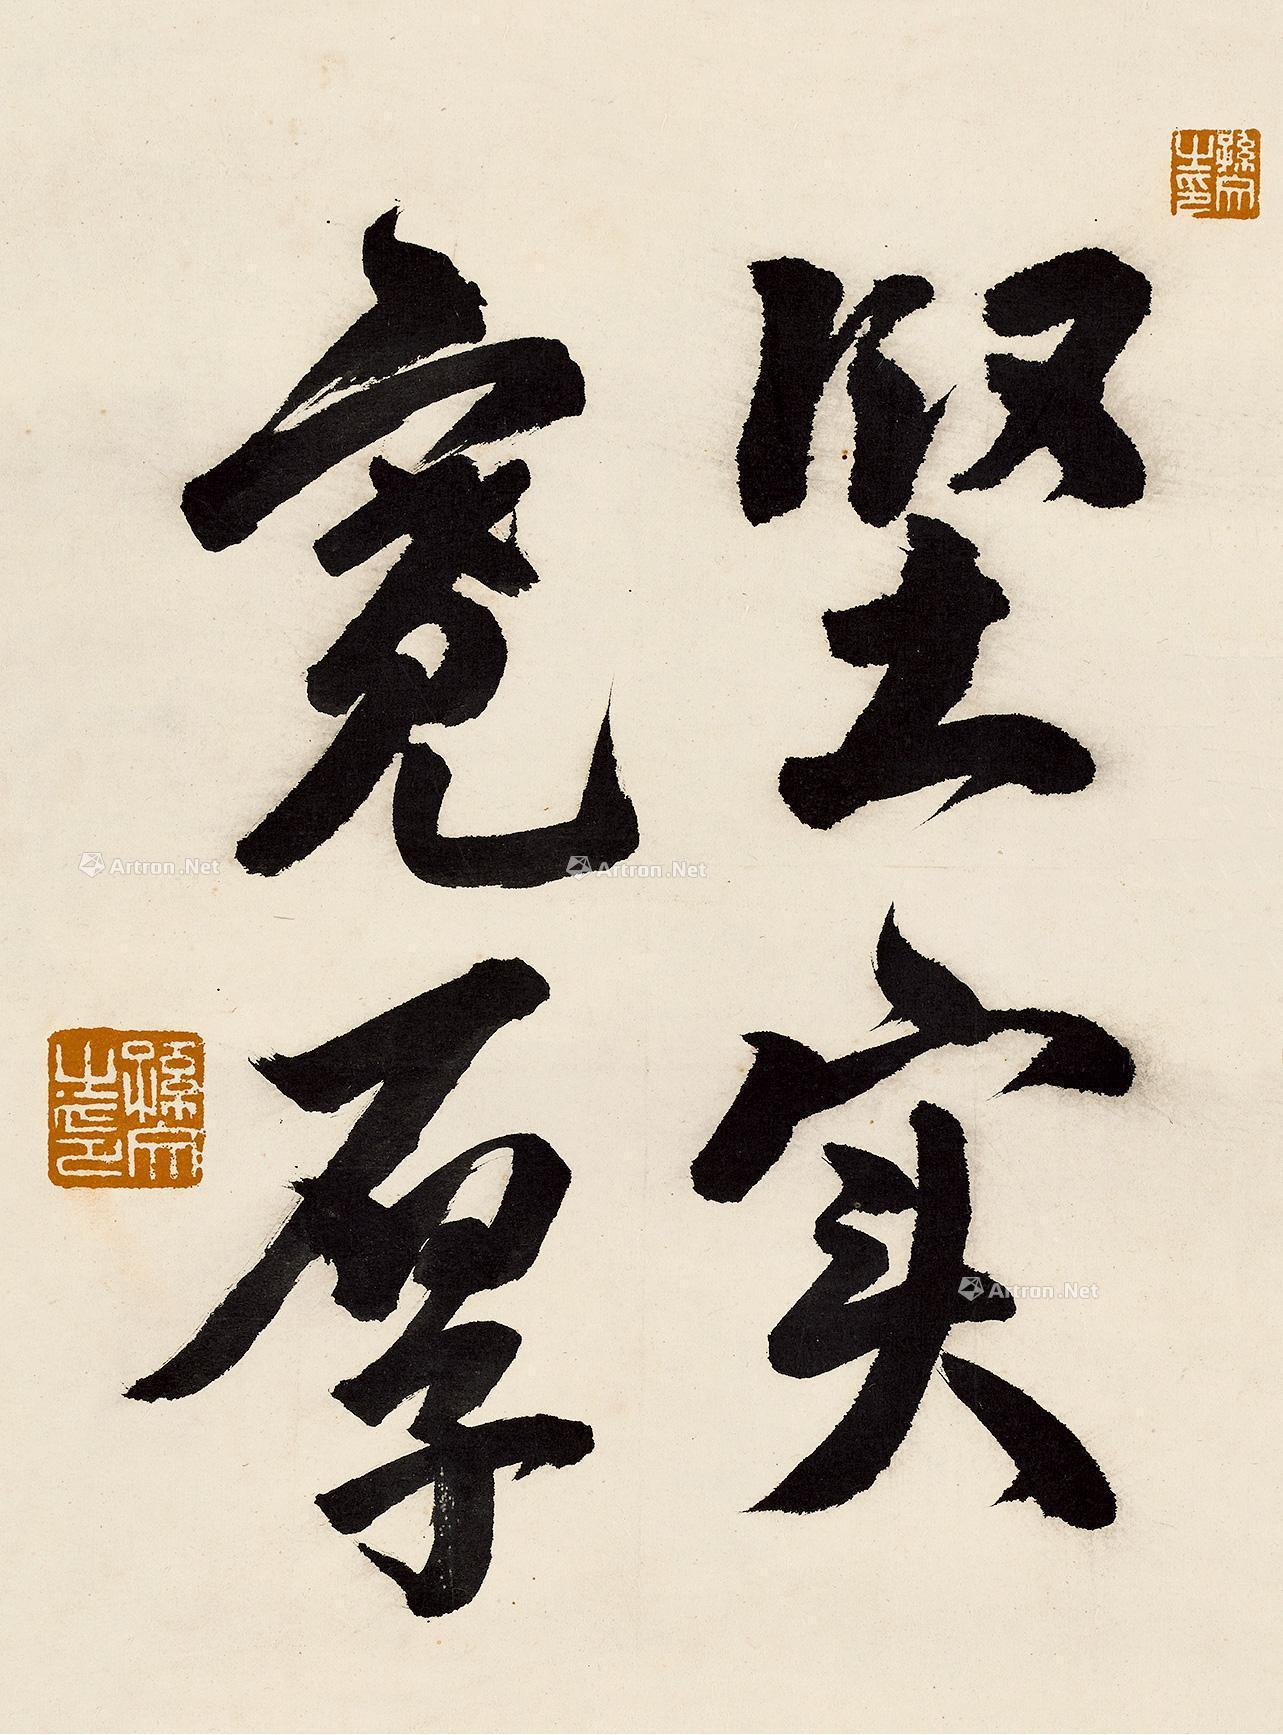 坚实
宽厚
孫宗之印
孫宗之印
Artron.Net
Artron.Net
Artron.Net